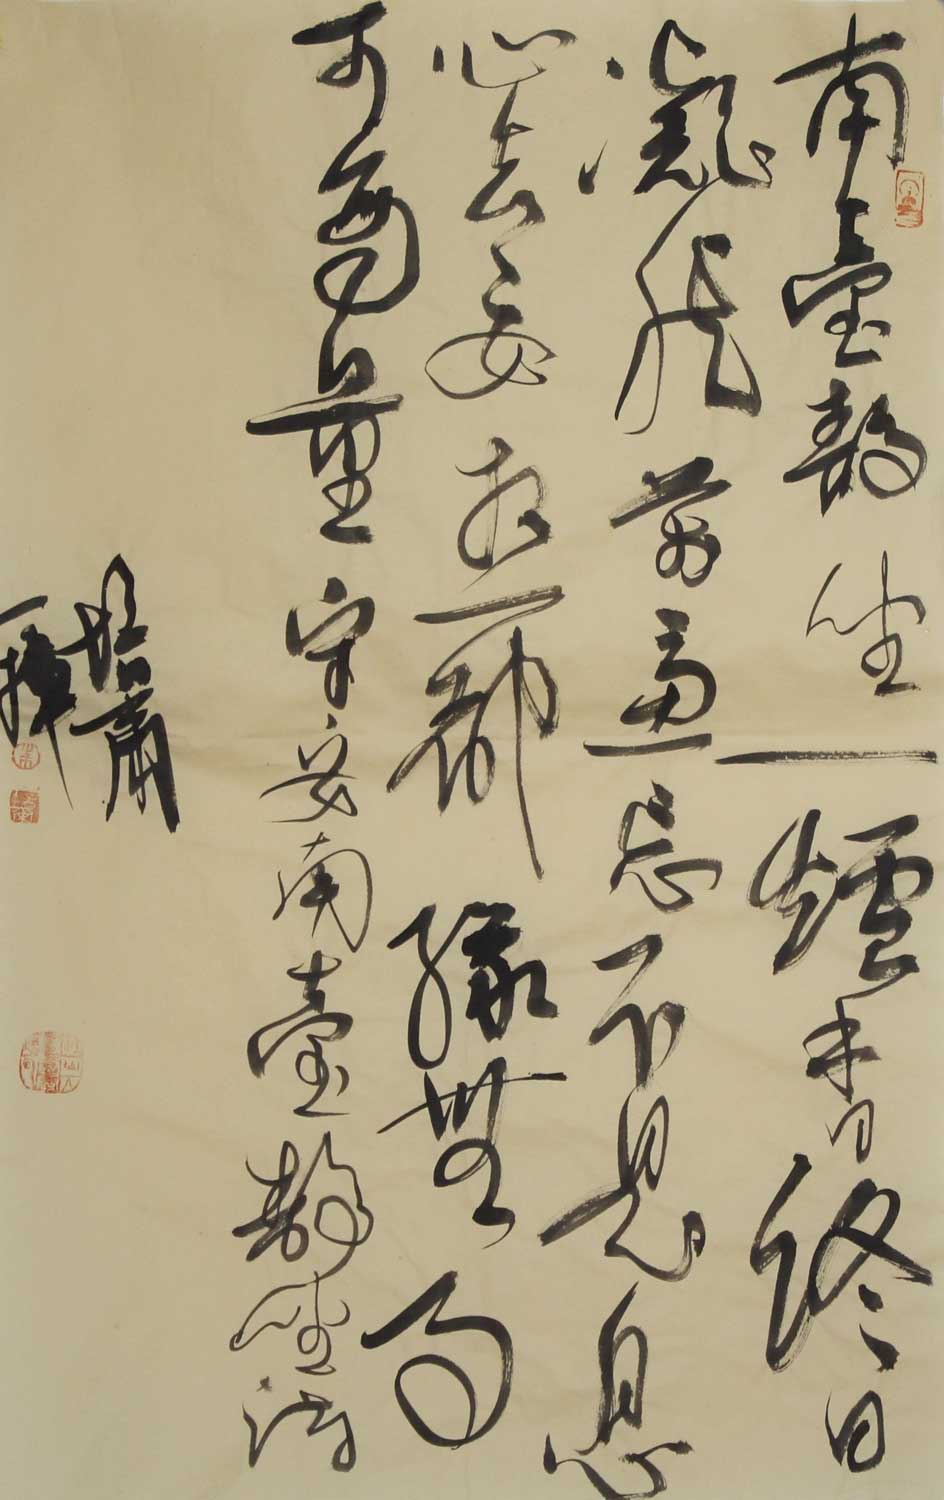 南臺静坐一爐香終日
凝然萬慮忘不是息
心去妄想都緣無事
可商量守安南臺静坐詩
一揮